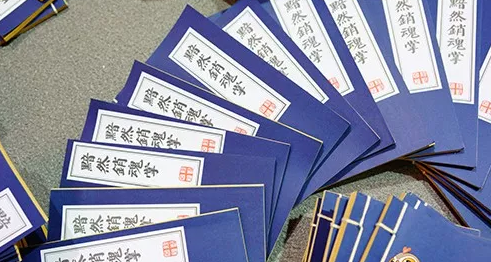 黯然銷魂掌
黯然銷魂掌
黯然銷魂掌
黯然銷魂掌
黯然銷魂掌
黯然銷魂掌
黯然銷魂掌
黯然銷魂掌
黯然銷魂掌
銷魂掌